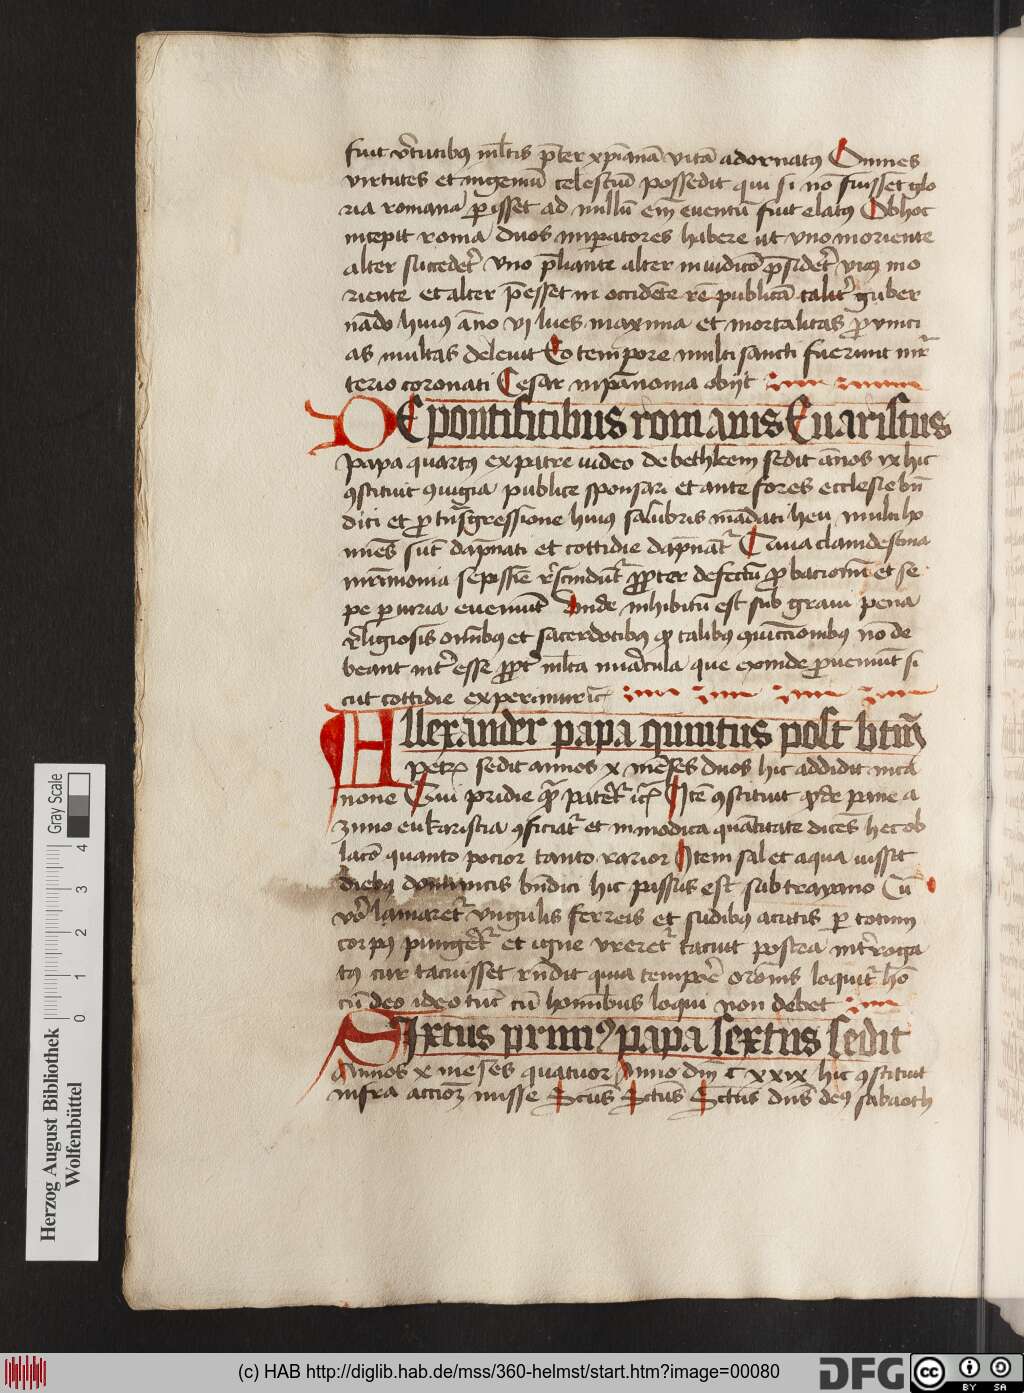 fuit v̾tutibꝰ ml̄tis p̄ter xp̄ianā vitā adornatꝰ Omnes
virtutes et ingeniū celestiū possedit qui si nō fuisset glo
ria romana ꝑisset ad nullū em̄ euentū fuit elatꝰ Ob hoc
incepit roma duos imꝑatores habere ut vno moriente
alter succedet͛ vno p̄liante alter in iudicō p̄sidet͛ vnꝰ mo
riente et alter p̄esset in occidēte rē publicā talit͛ guber
nādo huiꝰ āno vj lues maxima et mortalitas ꝓvinci
as multas deleuit Eo tempore multi sancti fuerunt mr̄
terio coronati Cesar in pānonia obijt
DE pontificibus romanis Euaristus
papa quartꝰ ex patre iudeo de bethleem sedit ānos ix hic
ꝯstituit ꝯiugia publice sponsari et ante fores ecclesie bn̄
dici et ꝓ tn̄sgressione huiꝰ salubris mādati heu multi ho
mīes sūt dāpnati et cottidie dāpnāt͛ Quia clandestina
mr̄imonia sepissīe r̾scindūt͛ ꝓpter defectū ꝓbacionū et se
pe ꝑiuria eueniūt vnde inhibitū est sub graui pena
r̾ligiosis om̄ibꝰ et sacerdotibꝰ ꝙ talibꝰ ꝯiūccionibꝰ nō de
beant int͛esse ꝓpt͛ ml̄ta miracula que exinde ꝓueniūt si
cut cottidie experimur ic̄
Allexander papa quintus post btm̄
petrꝫ sedit annos x mēses duos hic addidit in ca
none Qui pridie ꝙ̄ pateret͛ ic̄ Itē ꝯstituit ꝙ de pane a
zimo eukaristia ꝯficiat͛ et in modica quātitate dicēs hec ob
lacō quanto pocior tanto rarior Item sal et aqua iussit
diebꝰ dominicis bn̄dici hic passus est sub trayano Cū
v̾o laniaret͛ vngulis ferreis et sudibꝰ acutis ꝑ totum
corpꝰ pungēt͛ et igne vreret͛ tacuit postea int͛roga
tꝰ cur tacuisset rn̄dit quia tempr̄e orōnis loquit͛ hō
cū deo ideo tūc cū hominibus loqui non debet
SIxtus primꝰ papa sextus sedit
Annos x meſes quatuor Anno dn̄i C xxix hic ꝯstituit
infra accioꝫ misse Scūs Sctūs Sctūs dn̄s deꝰ sabaoth
Herzog August Bibliothek
Wolfenbüttel
Gray Scale
0 1 2 3 4
(c) HAB http://diglib.hab.de/mss/360-helmst/start.htm?image=00080
DFG
CC BY SA